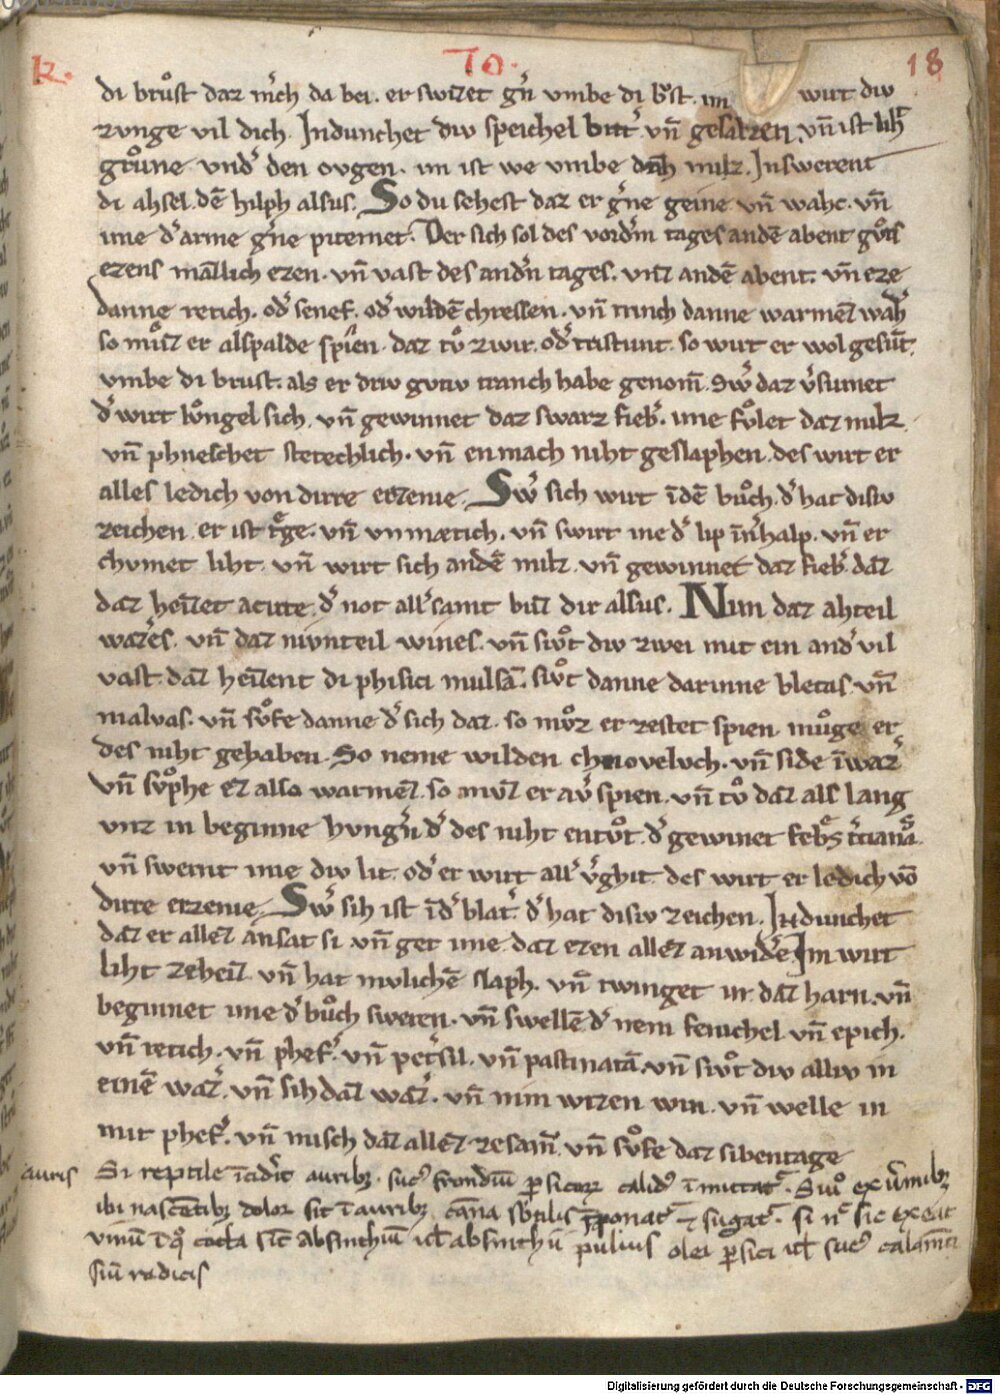 R. 70. 18
di brůst daz m̄ch da bei. er swizet gn̄ umbe di bˢost. im wirt div
zvnge vil dich. Indunchet div speichel bittˢ vn̄ gesalzen. vn̄ ist lihˢ
grůne vndˢ den ovgen. im ist we umbe daz milz. Inswerent
di ahsel. dē hilph alsus. So du sehest daz er gˢne geine vn̄ wahe. vn̄
ime dˢ arme gˢne pitemet. Der sich sol des vordˢn tages andē abent gůts
ezens mællich ezen. vn̄ vast des andˢn tages. vnz andē abent. vn̄ eze
danne retich. odˢ senef. odˢ wildē chressen. vn̄ trinch danne warmez wazˢ
so můz er alspalde spīen. daz tů zwir. odˢ tristunt. so wirt er wol gesūt.
vmbe di brust. als er driv gvtiv tranch habe genom̄. Swˢ daz vˢsumet
dˢ wirt lůngelsich. vn̄ gewinnet daz swarz fiebˢ. ime fůlet daz milz.
vn̄ phneschet stetechlich. vn̄ enmach niht geslaphen. des wirt er
alles ledich von dirre erzenie. Swˢ sich wirt īdē bůch. dˢ hat disiv
zeichen. er ist trˢge. vn̄ vnmætich. vn̄ swirt ime dˢ lip īnˢhalp. vn̄ er
chvmet liht. vn̄ wirt sich andē milz. vn̄ gewinnet daz fiebˢ. daz
daz heizet acute. dˢ not allˢ samt bůz dir alsus. Nim daz ahteil
wazˢes. vn̄ daz nivnteil wines. vn̄ sivt div zwei mit ein andˢ vil
vast. daz heizent di phisici mulsā. sivt danne darinne bletas. vn̄
malvas. vn̄ sůfe danne dˢ sich daz. so můz er zestet spien. můge er
des niht gehaben. So neme wilden chnovelvch. vn̄ side ī wazˢ
vn̄ svͦphe ez also warmez. so můz er avˢ spien. vn̄ tů daz als lang
vnz in beginne hvngˢn. dˢ des niht entůt. dˢ gewinet febˢs tˢcianā.
vn̄ swernt ime div lit. odˢ er wirt allˢ vˢgiht. des wirt er ledich vō
dirre erzenie. Swˢ sih ist īdˢ blatˢ. dˢ hat disiv zeichen. Indunchet
daz er allez ansat si. vn̄ get ime daz ezen allez anwidˢe. Im wirt
liht zeheiz. vn̄ hat mvlichē slaph. vn̄ twinget in daz harn. vn̄
beginnet ime dˢ bůch sweren. vn̄ swellē. dˢ nem fenichel. vn̄ epich.
vn̄ retich. vn̄ phefˢ. vn̄ petˢsil. vn̄ pastinatā. vn̄ sivt div alliv in
einē wazˢ. vn̄ sih daz wazˢ. vn̄ nim wizen win. vn̄ welle in
mit phefˢ. vn̄ misch daz allez zesam̄. vn̄ sůfe daz sibentage
auris Si reptile īcidˢit auribꝫ. sucꝰ frondiū ꝑsicoꝝ calidꝰ īmittatˢ. Siuͦ ex vˢmibꝫ
ibi nascētibꝫ dolor sit ī auribꝫ cāna sbtilis īponatˢ ⁊ sugatˢ. si nͨ sic exeat
vinū ī qͦ cocta sīt absinthiū ul absinthii puluis olei ꝑsici ul sucꝰ calamīti
siū radicis
Digitalisierung gefördert durch die Deutsche Forschungsgemeinschaft - DFG